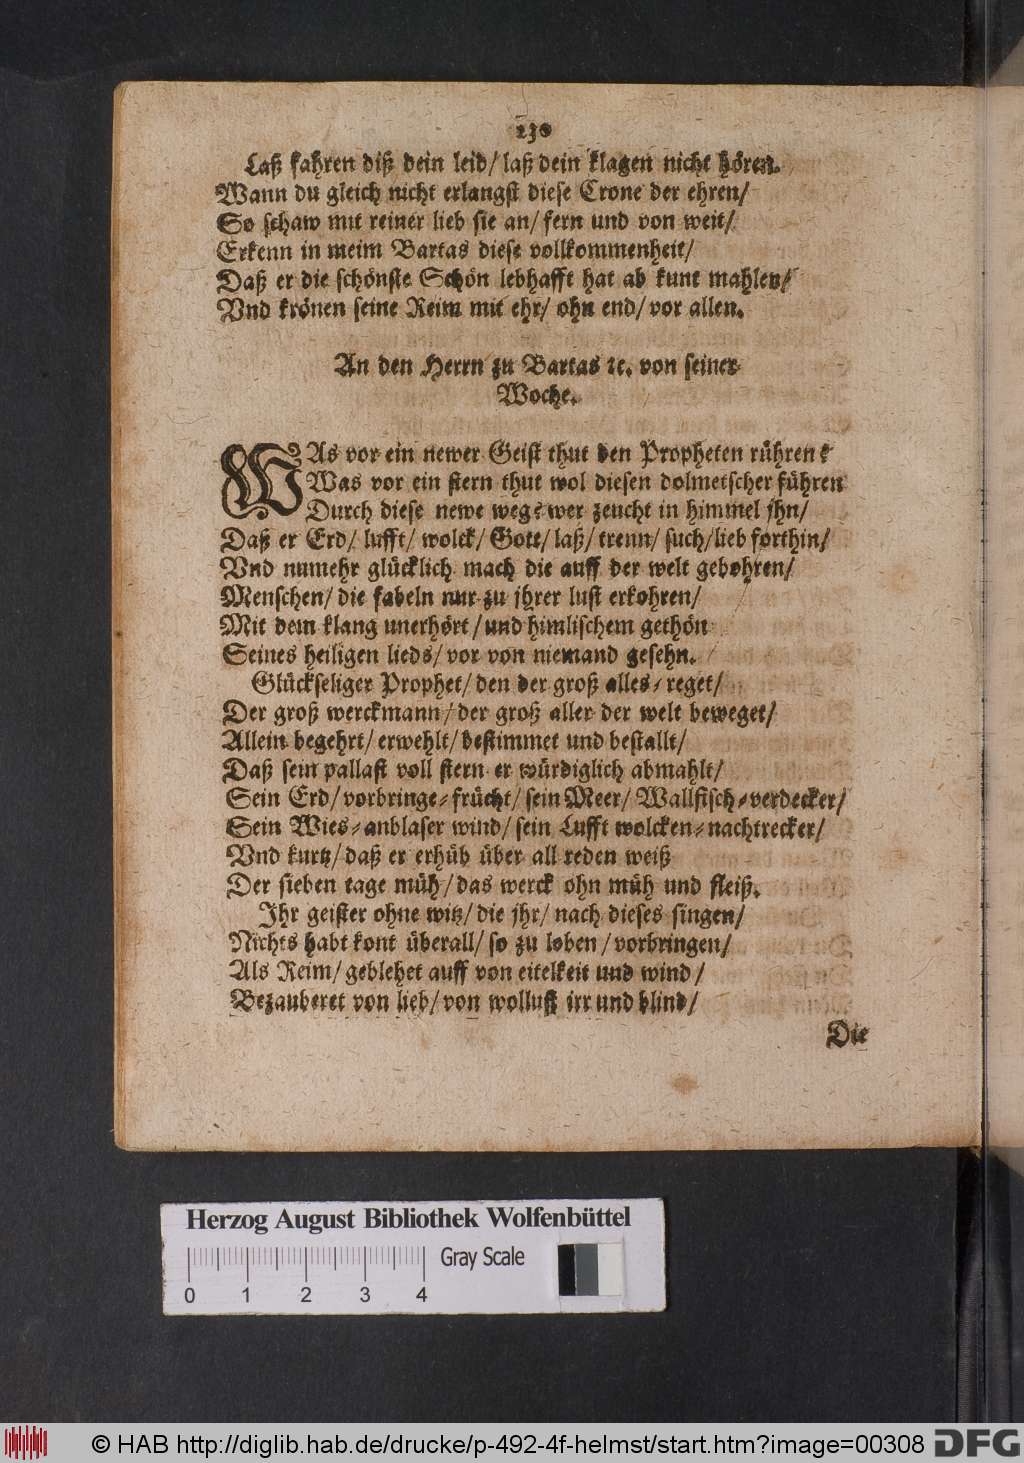 230
Laß fahren diß dein leid/ laß dein klagen nicht hören.
Wann du gleich nicht erlangst diese Crone der ehren/
So schaw mit reiner lieb sie an/ fern und von weit/
Erkenn in meim Bartas diese vollkommenheit/
Daß er die schönste Schön lebhafft hat ab kunt mahlen/
Vnd krönen seine Reim mit ehr/ ohn end/ vor allen.
An den Herrn zu Bartas ꝛc. von seiner
Woche.
WAs vor ein newer Geist thut den Propheten rühren?
Was vor ein stern thut wol diesen dolmetscher führen
Durch diese newe weg? wer zeucht in himmel jhn/
Daß er Erd/ lufft/ wolck/ Gott/ laß/ trenn/ such/ lieb forthin/
Vnd numehr glücklich mach die auff der welt gebohren/
Menschen/ die fabeln nur zu jhrer lust erkohren/
Mit dem klang unerhört/ und himlischem gethön
Seines heiligen lieds/ vor von niemand gesehn.
Glückseliger Prophet/ den der groß alles-reget/
Der groß werckmann/ der groß aller der welt beweget/
Allein begehrt/ erwehlt/ bestimmet und bestallt/
Daß sein pallast voll stern er würdiglich abmahlt/
Sein Erd/ vorbringe-frücht/ sein Meer/ Wallfisch-verdecker/
Sein Wies-anblaser wind/ sein Lufft wolcken-nachtrecker/
Vnd kurtz/ daß er erhüb über all reden weiß
Der sieben tage müh/ das werck ohn müh und fleiß.
Ihr geister ohne witz/ die jhr/ nach dieses singen/
Nichts habt kont überall/ so zu loben/ vorbringen/
Als Reim/ geblehet auff von eitelkeit und wind/
Bezauberet von lieb/ von wollust irr und blind/
Die
Herzog August Bibliothek Wolfenbüttel
Gray Scale
0 1 2 3 4
© HAB http://diglib.hab.de/drucke/p-492-4f-helmst/start.htm?image=00308 DFG